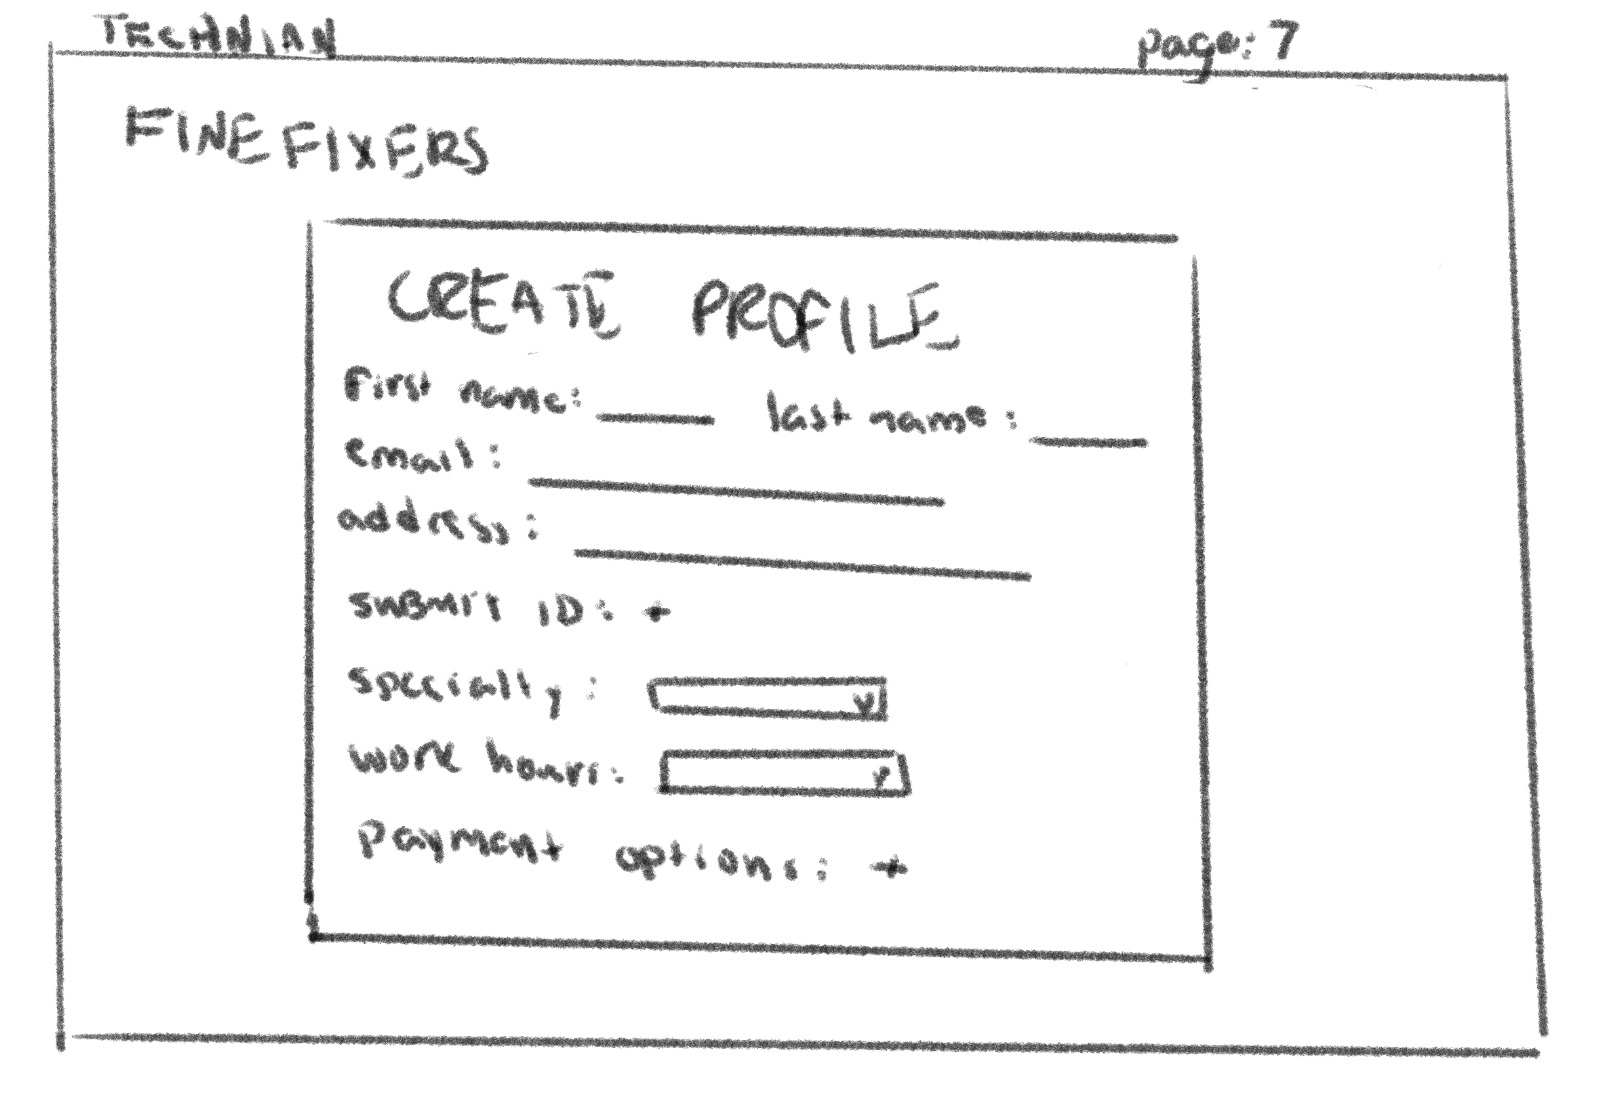 TECHNIAN page: 7
FINEFIXERS
CREATE PROFILE
First name: last name:
email:
address:
submit ID: +
specially:
work hours:
payment options: +